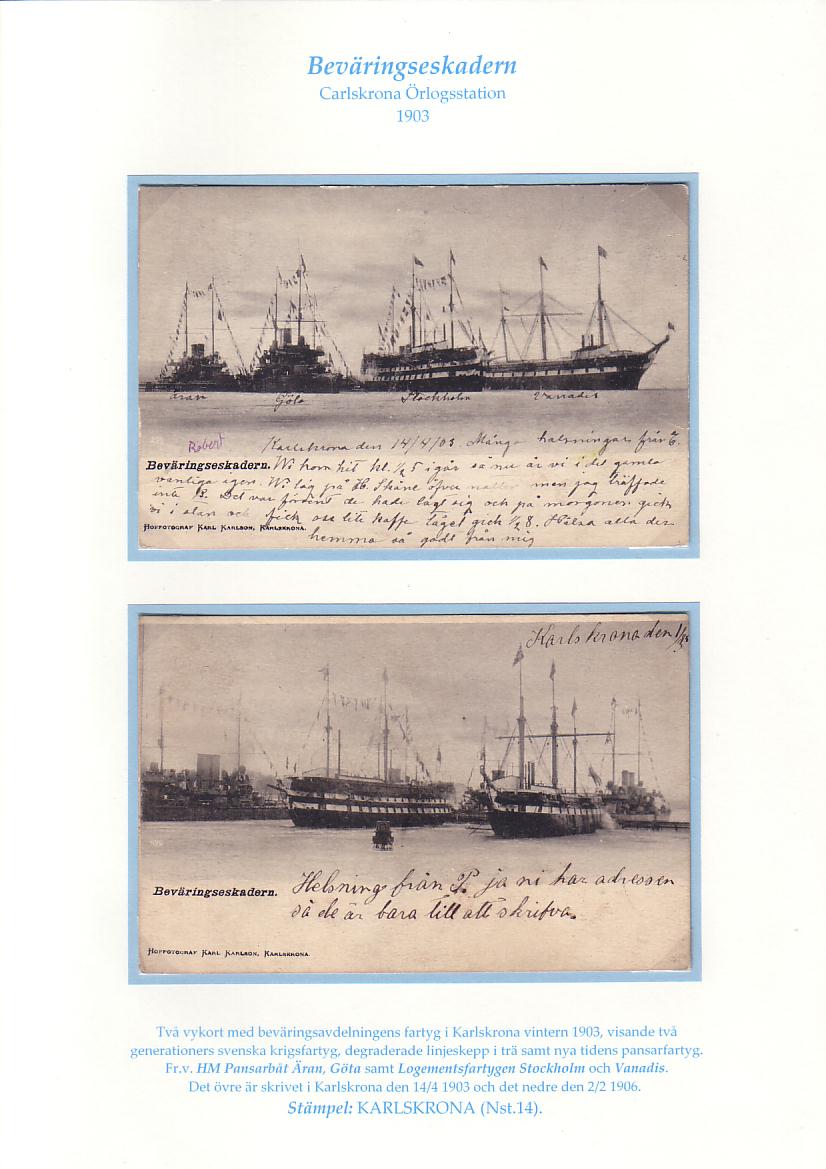 Beväringseskadern
Carlskrona Örlogsstation
1903
Äran Göta Stockholm Vanadis
Robert
Karlskrona den 14/4 03. Många helsningar från
Beväringseskadern. Vi kom hit kl. 1/2 5 igår så nu är vi i det gamla
vanliga igen. Vi låg på Hb. Skåne öfver natten men jag träffade
inte P. Det var förödt de hade lagt sig och på morgonen gick
vi i olan och fick oss lite kaffe tåget gick 1/2 8. Hälsa alla der
hemma så godt från mig
Hoffotograf Karl Karlson, Karlskrona.
Karlskrona den
Beväringseskadern.
Helsning från P. ja ni har adressen
så de är bara till att skrifva.
Hoffotograf Karl Karlson, Karlskrona.
Två vykort med beväringsavdelningens fartyg i Karlskrona vintern 1903, visande två
generationers svenska krigsfartyg, degraderade linjeskepp i trä samt nya tidens pansarfartyg.
Fr.v. HM Pansarbåt Äran, Göta samt Logementsfartygen Stockholm och Vanadis.
Det övre är skrivet i Karlskrona den 14/4 1903 och det nedre den 2/2 1906.
Stämpel: KARLSKRONA (Nst.14).